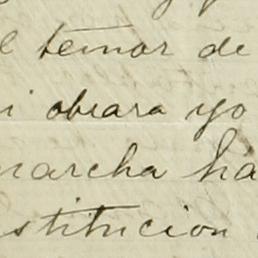 l temor de
i obrara yo
marcha ha
stitucion